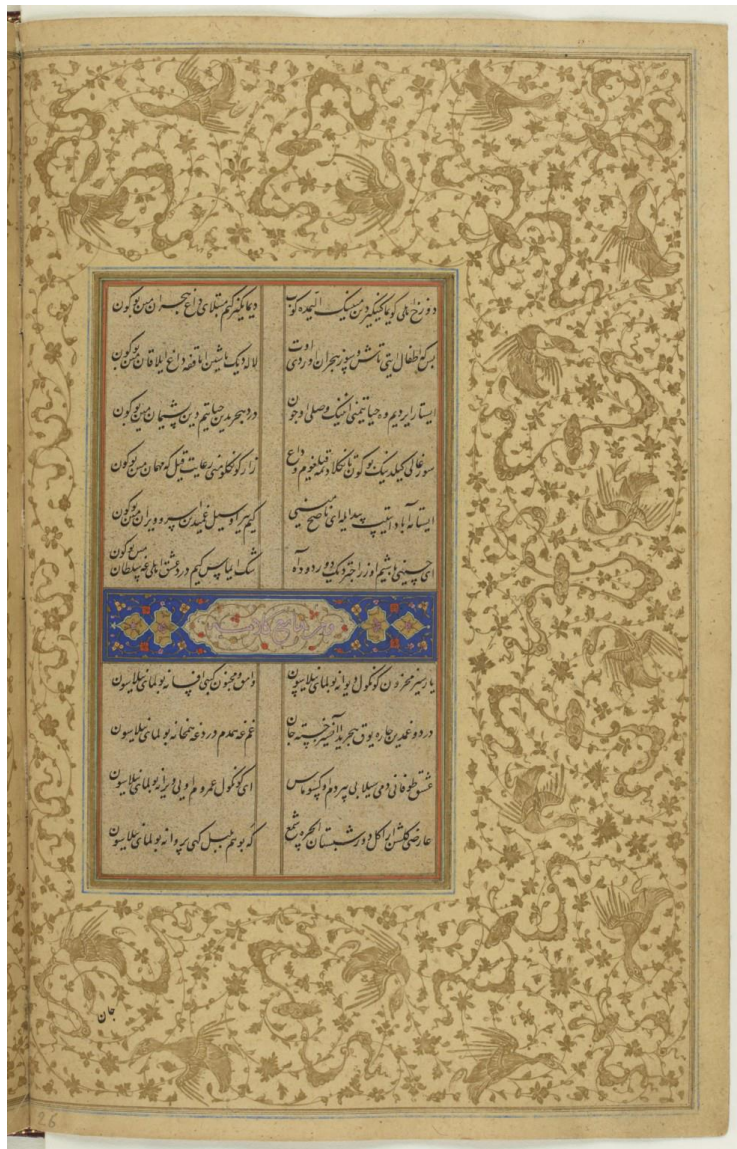 دوزخ ایلی کویماکینکیزدین مینینک الیمده کوب دیمانکیز کیم مبتلای داغ هجران من بوکون
بس که اطفال ایتی تاش و سوز هجران اوردی اوت لاله دیک باشتین ایاققه داغ ایلا قان من بوکون
ایستار ایردیم وه حیاتیمنی انینک وصلی اوچون درد هجریدین حیاتیم دین پشیمان من بوکون
سورغالی کیلدینک بوکون تانکلا دیمه قیلغوم وداع زار کونکلومنی رعایت قیل که مهمان من بوکون
ایستامه آباد ایتیب ناصح مینی کیم سیل غمیدین اسرو ویران من بوکون
ای حسینی باشیم اوزرا چتر دیک دور دود آه شک ایماس کیم درد عشق ایلی غه سلطان من بوکون
یارسیز محزون کونکول دیوانه بولمای نیلاسون وامق و مجنون کبی افسانه بولمای نیلاسون
درد و غمدین چاره یوق هجریدا خسته جان غم غه همدم درد غه همخانه بولمای نیلاسون
عشق طوفانی دمی سیلابی بیر دم اوکسوماس ای کونکول عمروم اویی ویرانه بولمای نیلاسون
عارضی کلشن ارا کل دور شبستان ایچره شمع که بو هم بلبل کبی پروانه بولمای نیلاسون
جان
26